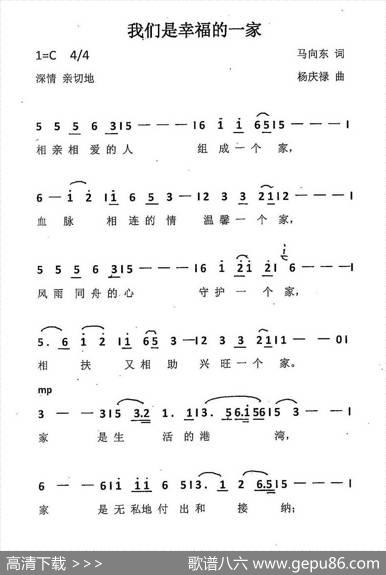 我们是幸福的一家
1=C 4/4 马向东 词
深情 亲切地 杨庆禄 曲
5 5 5 6 3|5 — — —|6 i i 6 5|5 — — —|
相亲相爱的人 组成一个家,
6 — i 2|i 6 5 3 —|2 3 3 2 1|2 — — —|
血脉 相连的情 温馨一个家,
5 5 5 6 3|5 — — —|6 i 2 i 2 i|6 — — —|
风雨同舟的心 守护一个家,
5. 6 i 2|i 6 5 3 —|2 3 3 2 1|1 — — 0|
相扶 又相助 兴旺一个家。
mp
3 — — 3|5 3.2 1. 1|3. 5 6.i 5 6|5 3 — —|
家 是生活的港湾,
6 — — 6|i i i 6 5 5 3|2. 3 2 6.5|5 — — —|
家 是无私地付出和接纳;
高清下载 >>> 歌谱八六 www.gepu86.com